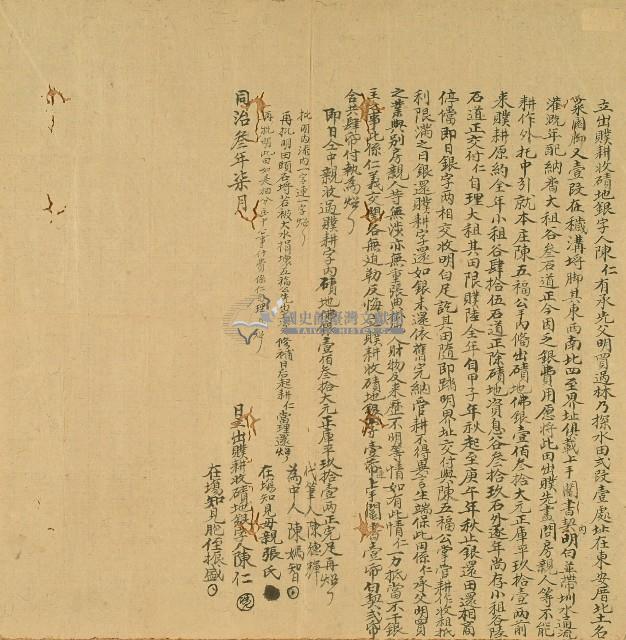 立出贌耕收磧地銀字人陳仁有承先父明買過林乃探水田弍段壹處址在東安厝北土名
菜園脚又壹段在穢溝埒脚其東西南北四至界址俱載上手鬮書契內明白並帶圳水通流
灌溉年配納耆大租谷叁石道正今因乏銀費用愿將此田出贌先盡問房親人等不能
耕作外托中引就本庄陳五福公手內借出磧地佛銀壹佰叁拾大元正庫平玖拾壹兩前
來贌耕原約全年小租谷肆拾伍石道正除磧地資息谷叁拾玖石外逐年尚存小租谷陸
石道正交付仁自理大租其田限贌陸全年自甲子年秋起至庚午年秋止銀還田還相商
停儅即日銀字兩相交收明白足訖其田隨即踏明界址交付與陳五福公掌管耕作收租抵
利限滿之日銀還贌耕字還如銀未還依舊完納管耕不得異言生端保此田係仁承父明買
之業與別房親人等無涉亦無重張典掛他人財物及來歷不明等情如有此情仁一力抵當不干銀
主之事此係仁義交關各無迫勒反悔
合共肆帋付執為炤
即日仝中親收過贌耕字內磧地佛銀壹佰叁拾大元正庫平玖拾壹兩正完足再炤
批明內添內一字連一字炤
代筆人陳德樺
為中人陳媽智
在塲知見母親張氏
同治叁年柒月 日立出贌耕收磧地銀字人陳仁
在塲知見胞侄振盛
國史館臺灣文獻館
TAIWAN HISTORICA